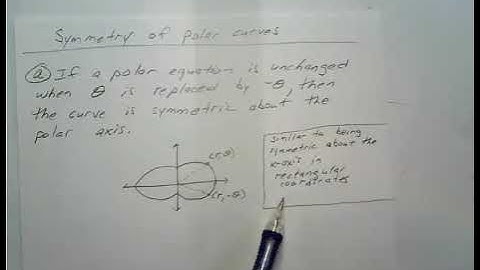 Symmetry of polar curves
(a) If a polar equation is unchanged
when θ is replaced by -θ, then
the curve is symmetric about the
polar axis.
(r,θ)
(r,-θ)
similar to being
symetric about the
x-axis in
rectangular
coordinates